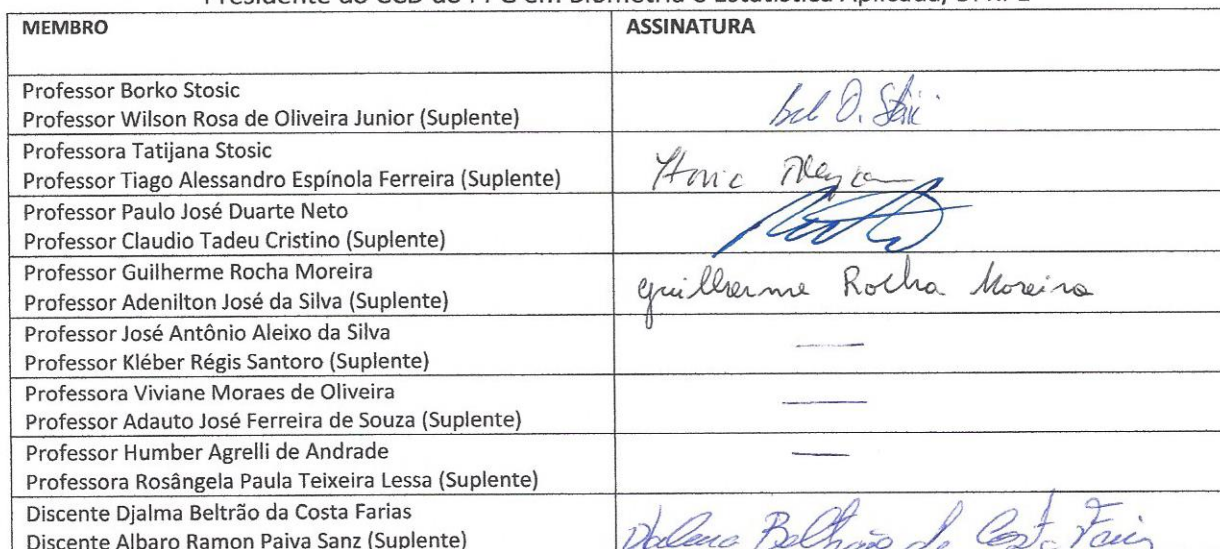 Presidente do CCD do PPG em Biometria e Estatística Aplicada, UFRPE
MEMBRO
ASSINATURA
Professor Borko Stosic
Professor Wilson Rosa de Oliveira Junior (Suplente)
Professora Tatijana Stosic
Professor Tiago Alessandro Espínola Ferreira (Suplente)
Professor Paulo José Duarte Neto
Professor Claudio Tadeu Cristino (Suplente)
Professor Guilherme Rocha Moreira
Professor Adenilton José da Silva (Suplente)
Guilherme Rocha Moreira
Professor José Antônio Aleixo da Silva
Professor Kléber Régis Santoro (Suplente)
Professora Viviane Moraes de Oliveira
Professor Adauto José Ferreira de Souza (Suplente)
Professor Humber Agrelli de Andrade
Professora Rosângela Paula Teixeira Lessa (Suplente)
Discente Djalma Beltrão da Costa Farias
Discente Albaro Ramon Paiva Sanz (Suplente)
Djalma Beltrão da Costa Farias